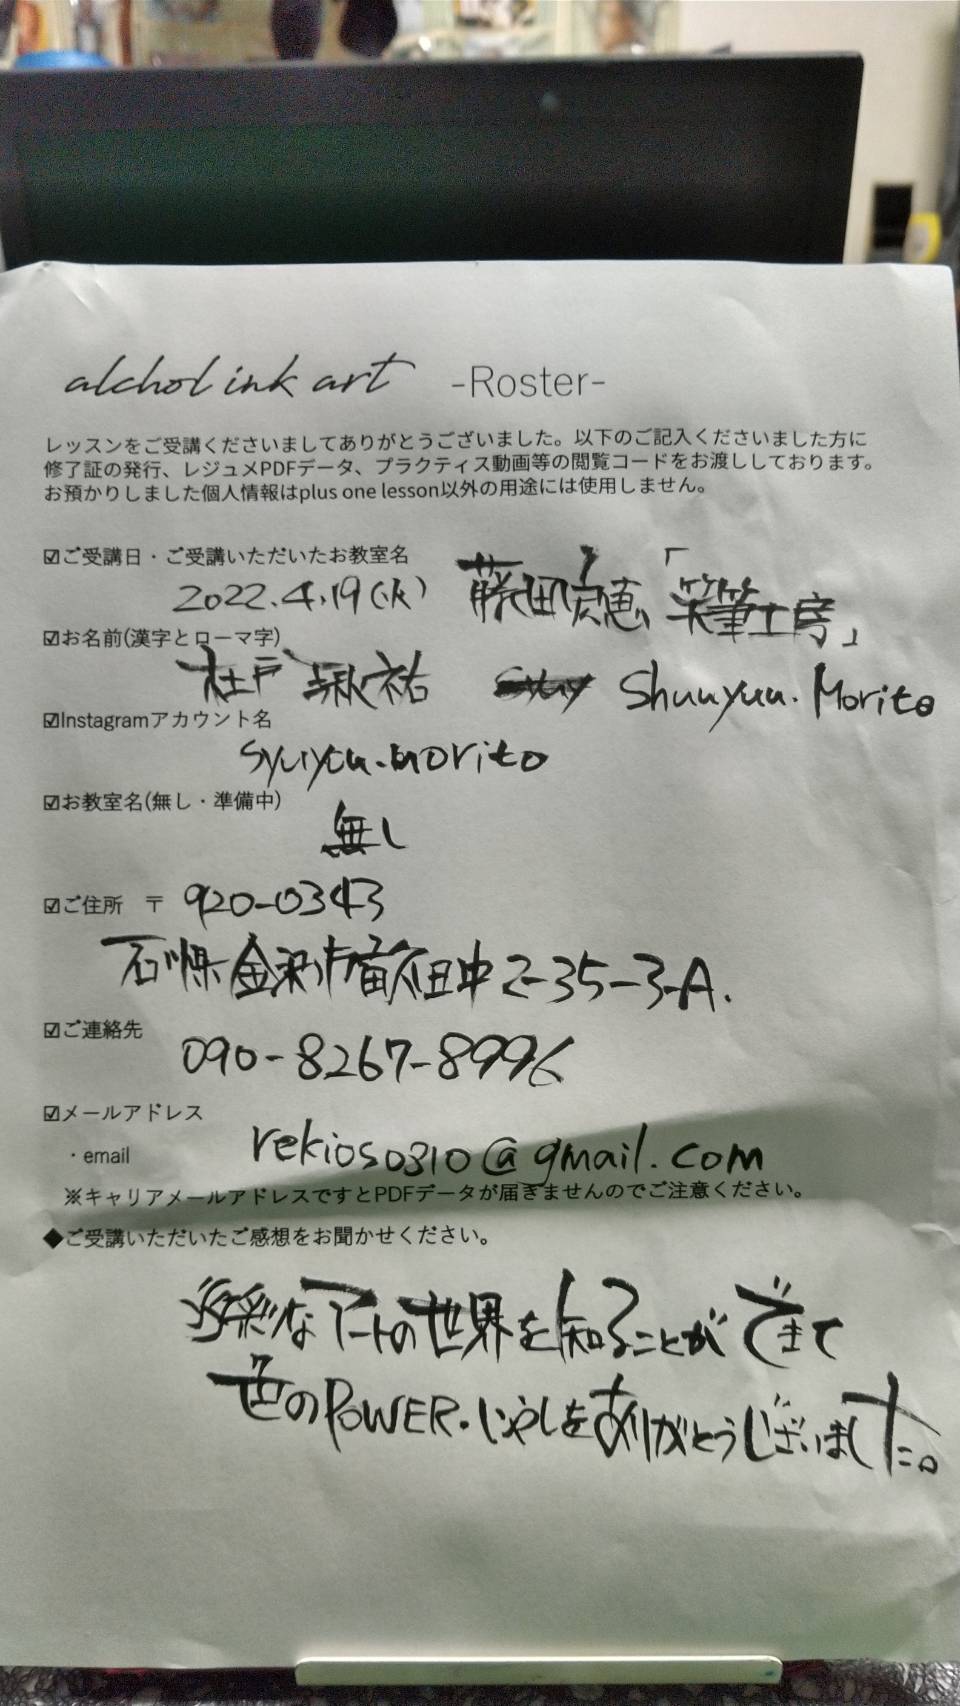 alchol ink art -Roster-
レッスンをご受講くださいましてありがとうございました。以下のご記入くださいました方に
修了証の発行、レジュメPDFデータ、プラクティス動画等の閲覧コードをお渡ししております。
お預かりしました個人情報はplus one lesson以外の用途には使用しません。
☑ご受講日・ご受講いただいたお教室名
2022.4.19(火) 藤田宏恵「笑筆工房」
☑お名前(漢字とローマ字)
杜戸 祐 Shuuyuu.Morito
☑Instagramアカウント名
syuyou.morito
☑お教室名(無し・準備中)
無し
☑ご住所 〒 920-0343
石川県金沢市畝田中2-35-3-A.
☑ご連絡先
090-8267-8996
☑メールアドレス
・email rekios0310@gmail.com
※キャリアメールアドレスですとPDFデータが届きませんのでご注意ください。
◆ご受講いただいたご感想をお聞かせください。
多彩なアートの世界を知ることができて
色のPOWER.いやしをありがとうございました。